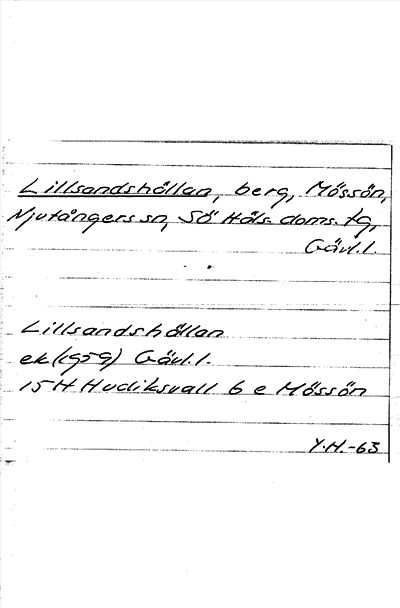 Lillsandshällan, berg, Mössön,
Njutångers sn, Sö Häls. doms. tg,
Gävl.l.
Lillsandshällan
ek (1959) Gävl.l.
15 H Hudiksvall 6 e Mössön
Y.H.-63